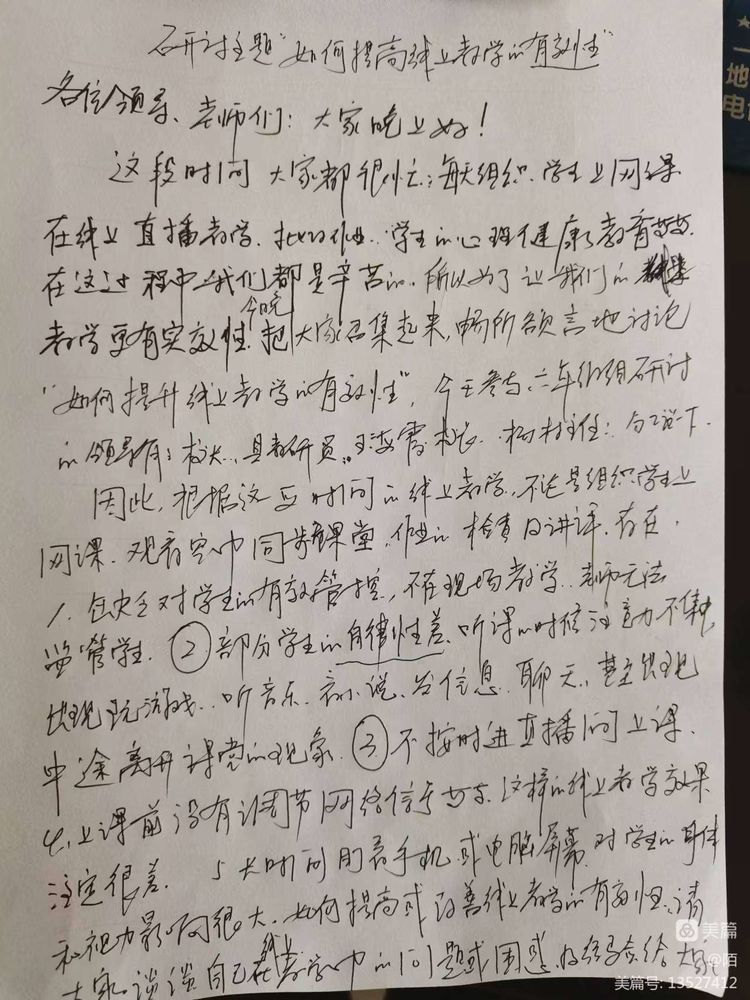 研讨主题"如何提高线上教学的有效性"
各位领导、老师们：大家晚上好！
这段时间大家都很忙：每天组织学生上网课
在线上直播教学、批改作业、学生的心理健康教育等等.
在这过程中我们都是辛苦的、所以为了让我们的
教学更有实效性.今晚把大家召集起来,畅所欲言地讨论
"如何提升线上教学的有效性",今天参与六年级组研讨
的领导有：校长、县教研员、王海霞校长、杨主任：
因此,根据这一段时间的线上教学,不论是组织学生上
网课、观看空中同步课堂、作业的检查及讲评、存在、
1、缺乏对学生的有效管控,不在现场教学、老师无法
监管学生. ②部分学生的自律性差、听课的时候注意力不集中
出现玩游戏、听音乐、看小说、发信息、聊天、甚至出现
中途离开课堂的现象. ③不按时进直播间上课.
4、上课前没有调节网络信号等等.这样的线上教学效果
注定很差. 5 长时间用看手机或电脑屏幕对学生的身体
和视力影响很大.如何提高或改善线上教学的有效性、请
大家谈谈自己在线上教学中的问题或困惑.好经验给大家
美篇
@陌
美篇号: 13527412
地
电